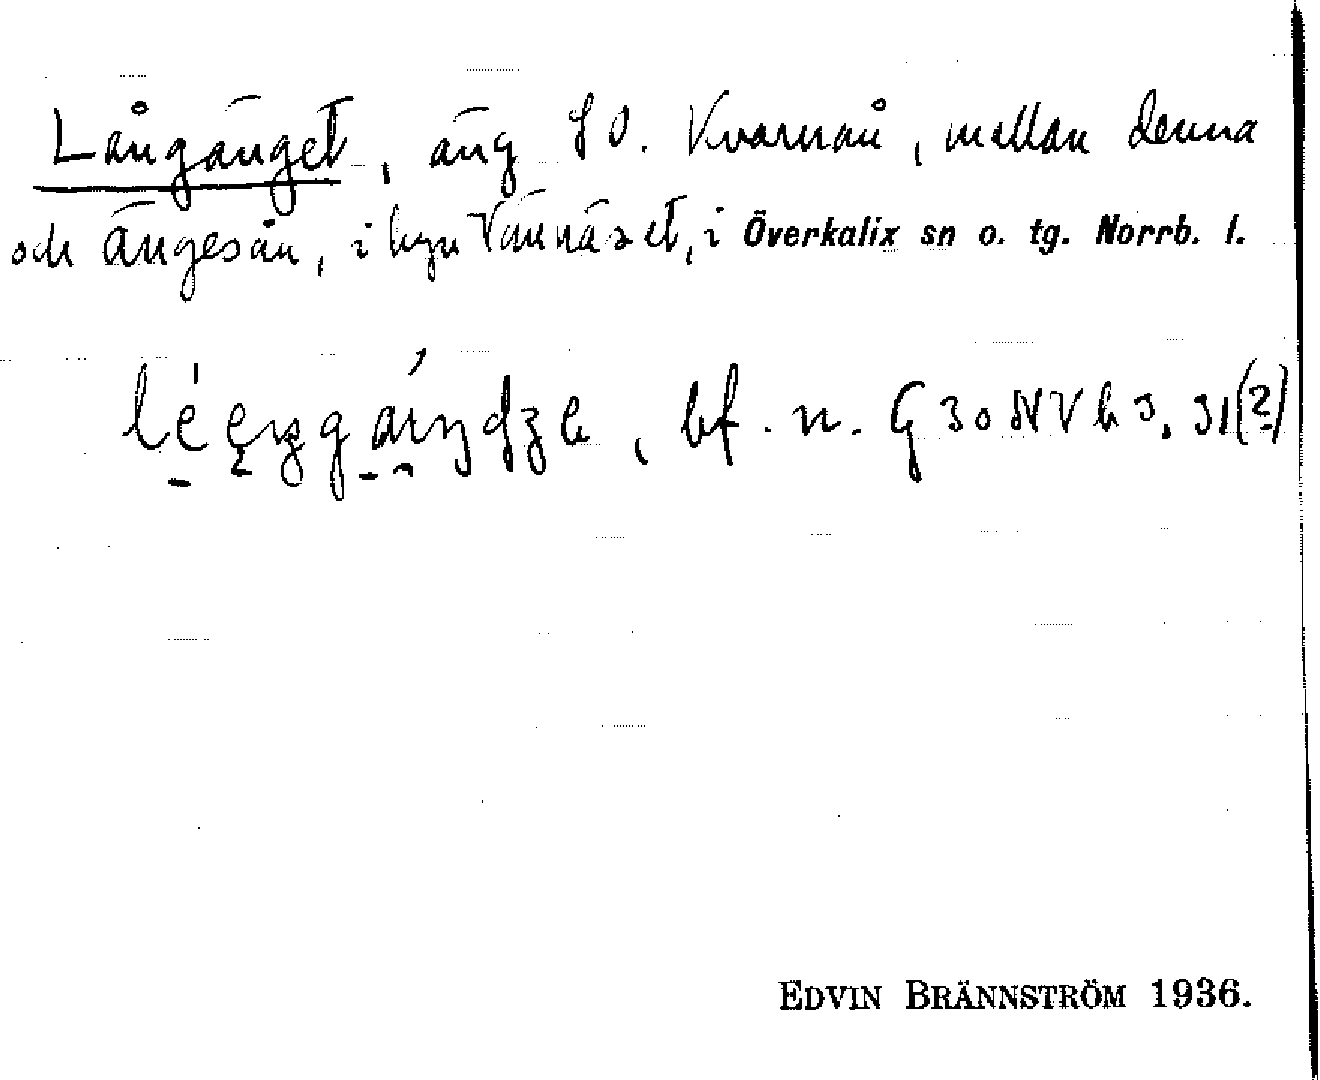 Långänget, äng SO. Kvarnån, mellan denna
och Ängesån, i byn Vännäset, i Överkalix sn o. tg. Norrb. l.
bf. n. G 30 NV h 3, 31(?)
EDVIN BRÄNNSTRÖM 1936.